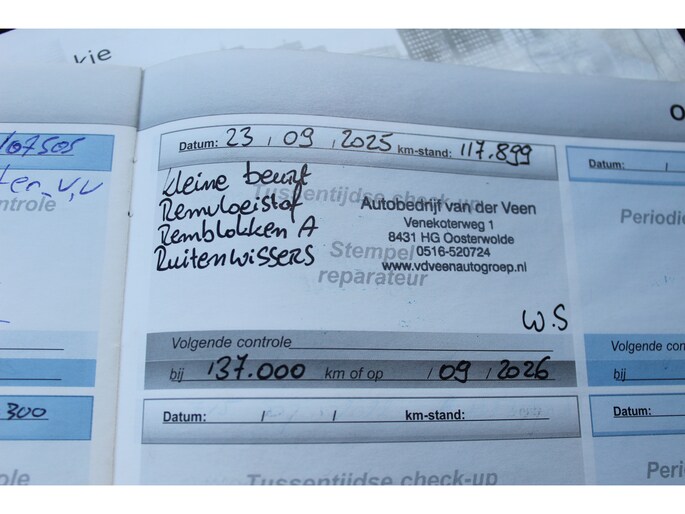 kie
107505
ntrole
300
ole
O
Datum: 23 / 09 / 2025 km-stand: 117.899
kleine beurt
Remvloeistof
Remblokken A
Ruitenwissers
Tussentijdse check-up
Stempel
reparateur
Autobedrijf van der Veen
Venekoterweg 1
8431 HG Oosterwolde
0516-520724
www.vdveenautogroep.nl
W.S
Volgende controle
bij 137.000 km of op / 09 / 2026
Datum: / / km-stand:
Tussentijdse check-up
Datum: /
Periodie
Volgende
bij
Datum:
Peri